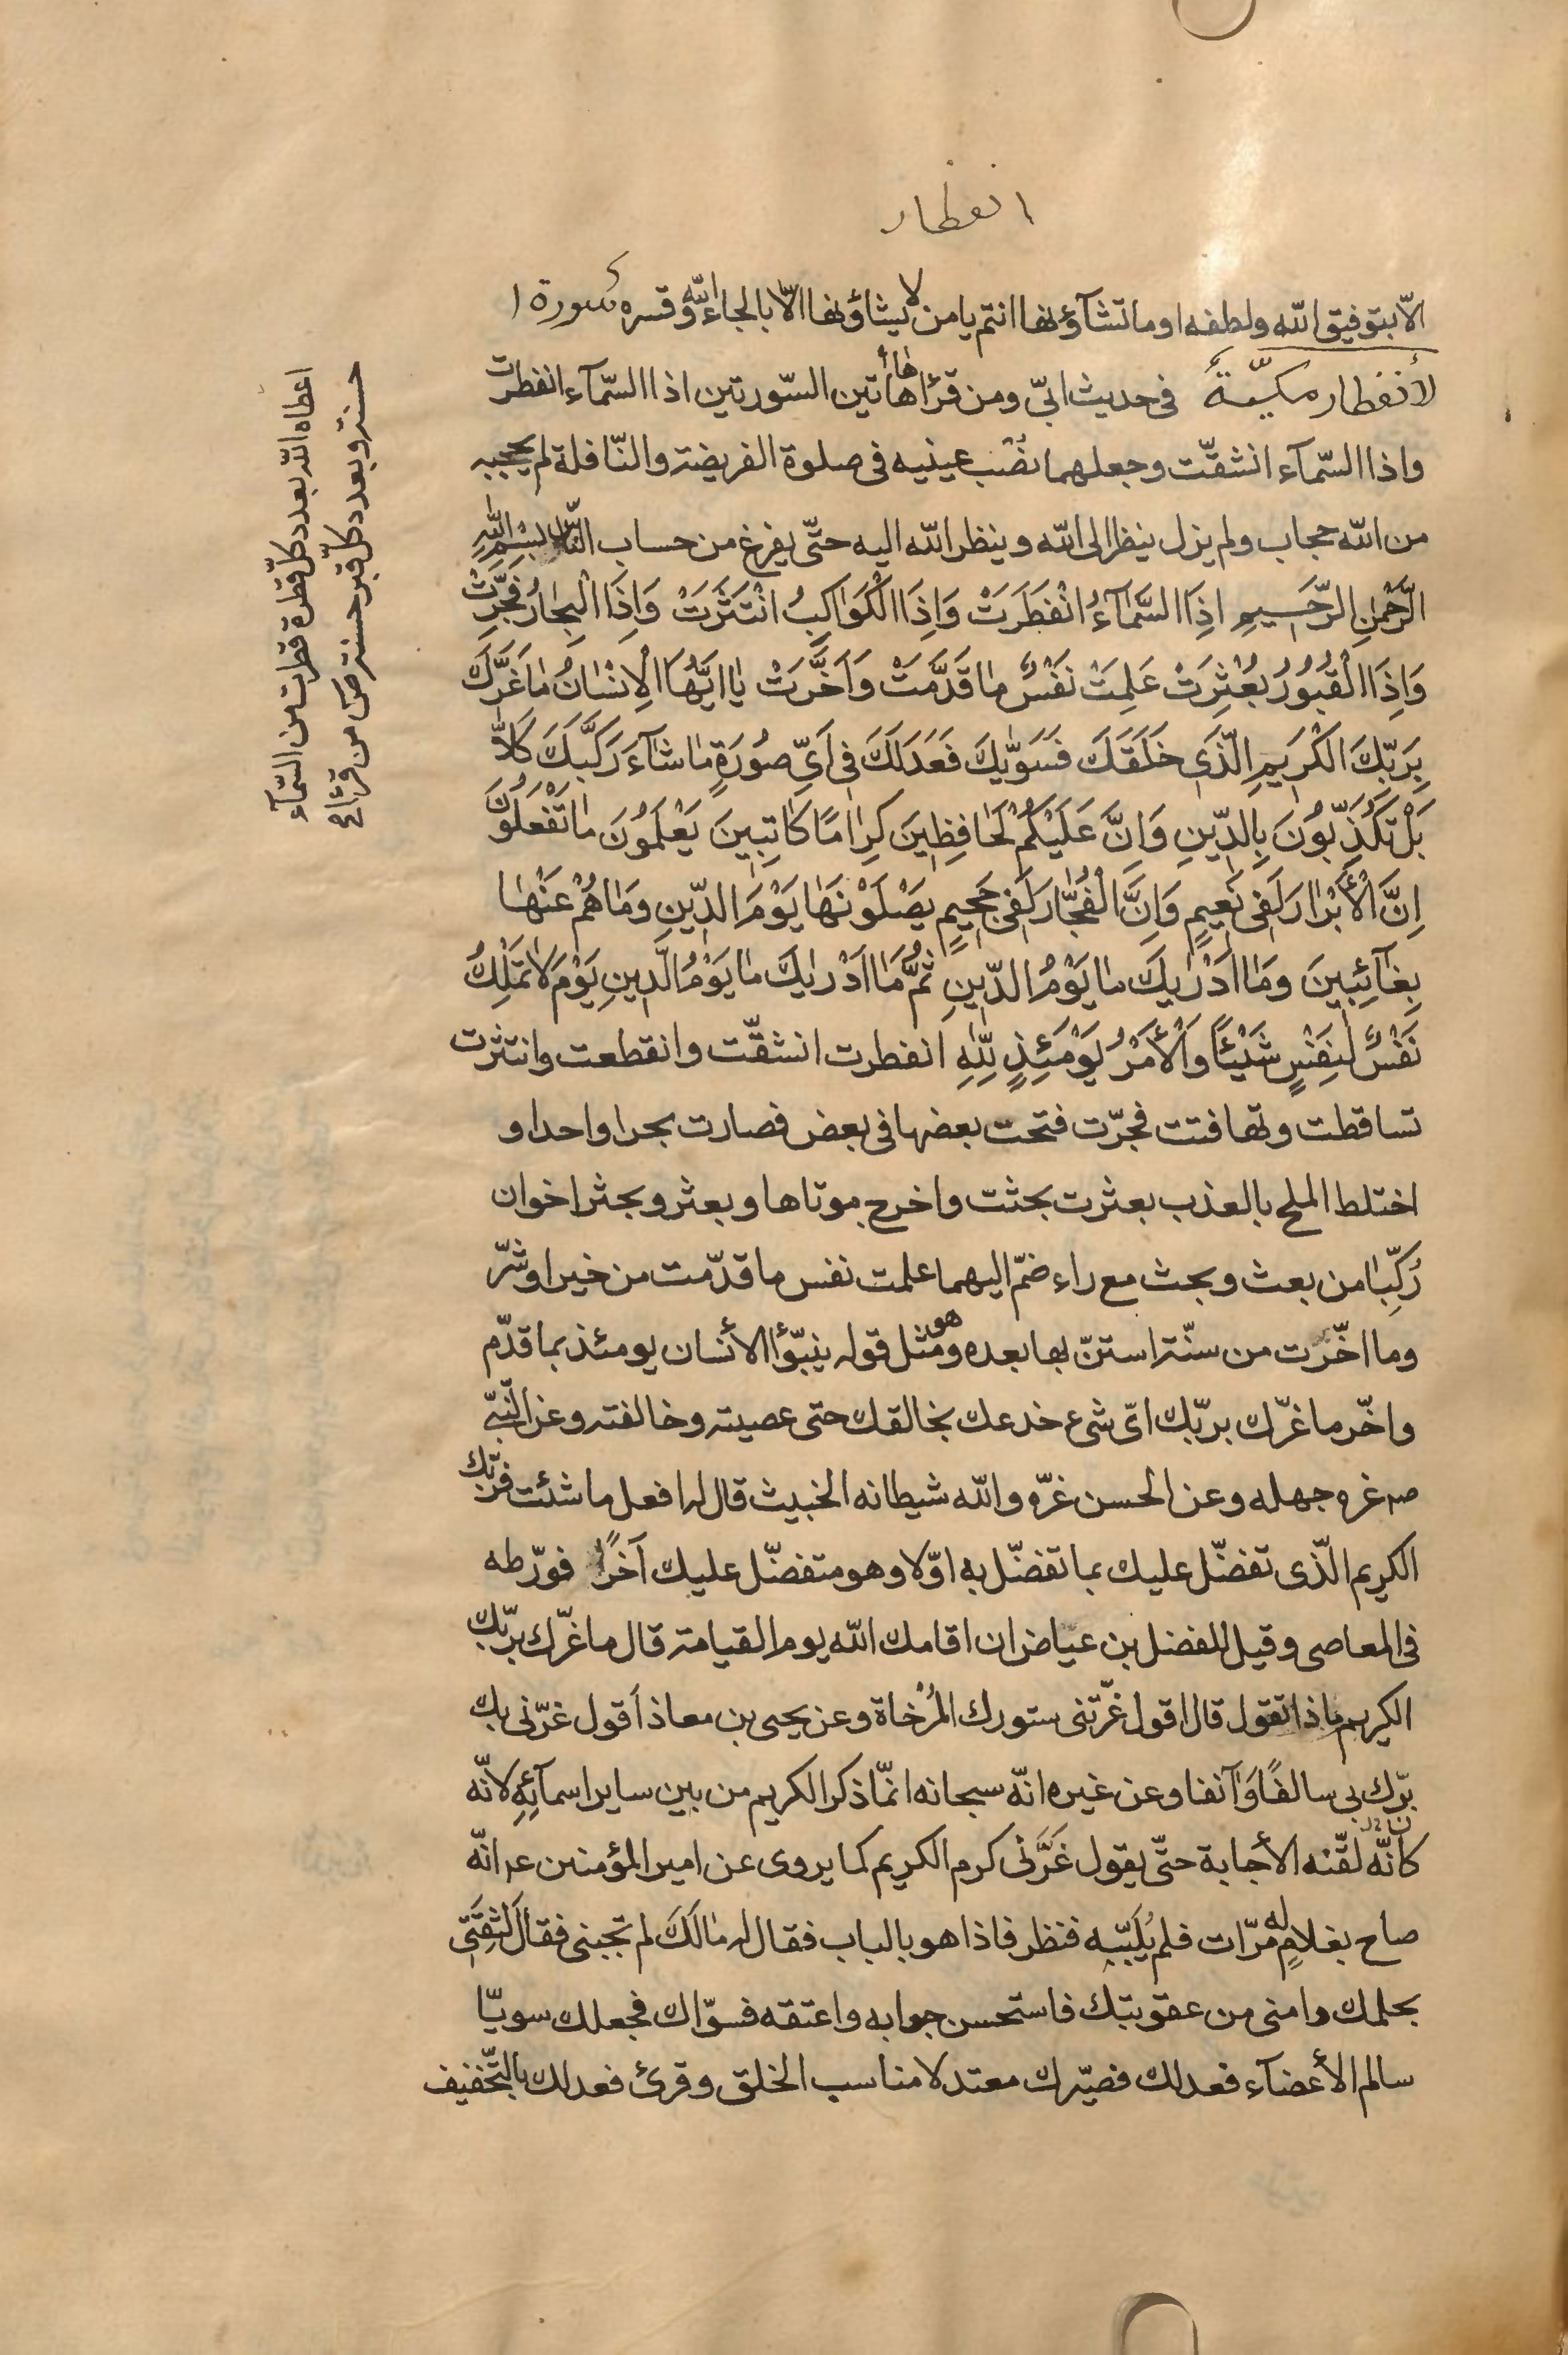 انفطار
الّا بتوفيق اللّه ولطفه او ما تشآؤنها انتم يا من لا يشاؤنها الّا بالجاء اللّه وقسره سورة ا
لأنفطار مكيّة في حديث ابيّ ومن قرأ هاتين السّورتين اذا السّمآء انفطرت
واذا السّمآء انشقّت وجعلهما نصب عينيه فى صلوة الفريضة والنّافلة لم يحجبه
من اللّه حجاب ولم يزل ينظر الى اللّه وينظر اللّه اليه حتّى يفرغ من حساب النّاس بِسْمِ اللّٰهِ
الرَّحْمٰنِ الرَّحيمِ اِذَا السَّمآءُ انْفَطَرَتْ وَاِذَا الْكَوَاكِبُ انْتَثَرَتْ وَاِذَا الْبِحارُ فُجِّرَتْ
وَاِذَا الْقُبُورُ بُعْثِرَتْ عَلِمَتْ نَفْسٌ مٰا قَدَّمَتْ وَاَخَّرَتْ يٰا اَيُّهَا الْاِنْسٰانُ مٰا غَرَّكَ
بِرَبِّكَ الْكَرِيمِ الَّذى خَلَقَكَ فَسَوّٰيكَ فَعَدَلَكَ فى اَيِّ صُورَةٍ مٰا شٰآءَ رَكَّبَكَ كَلّٰا
بَلْ تُكَذِّبُونَ بِالدّينِ وَاِنَّ عَلَيْكُمْ لَحٰافِظينَ كِرٰامًا كٰاتِبينَ يَعْلَمُونَ مٰا تَفْعَلُونَ
اِنَّ الْأَبْرٰارَ لَفى نَعيمٍ وَاِنَّ الْفُجّٰارَ لَفى جَحيمٍ يَصْلَوْنَهٰا يَوْمَ الدّينِ وَمٰا هُمْ عَنْهٰا
بِغٰآئِبينَ وَمٰا اَدْرٰيكَ مٰا يَوْمُ الدّينِ ثُمَّ مٰا اَدْرٰيكَ مٰا يَوْمُ الدّينِ يَوْمَ لٰا تَمْلِكُ
نَفْسٌ لِنَفْسٍ شَيْئًا وَالْأَمْرُ يَوْمَئِذٍ لِلّٰهِ انفطرت انشقّت وانقطعت وانتثرت
تساقطت وتهافتت فجّرت فتحت بعضها فى بعض فصارت بحرا واحدا و
اختلط الملح بالعذب بعثرت بحثت واخرج موتاها وبعثر وبحثر اخوان
رُكِّبٰا من بعث وبحث مع راء ضمّ اليهما علمت نفس ما قدّمت من خير او شرّ
وما اخّرت من سنّة استنّ بها بعده وهو مثل قوله ينبّؤا الأنسان يومئذ بما قدّم
واخّر ما غرّك بربّك اىّ شىء خدعك بخالقك حتى عصيته وخالفته وعن النّبىّ
صه غره جهله وعن الحسن غرّه واللّه شيطانه الخبيث قال له افعل ما شئت فربّك
الكريم الّذى تفضّل عليك بما تفضّل به اوّلا وهو متفضّل عليك آخرًا فورّطه
فى المعاصى وقيل للفضل بن عياض ان اقامك اللّه يوم القيامة قال ما غرّك بربّك
الكريم ماذا تقول قال اقول غرّتنى ستورك المُرْخاة وعن يحيى بن معاذ اقول غرّنى بك
برّك بى سالفًا وَآنفا وعن غيره انّه سبحانه انّما ذكر الكريم من بين ساير اسمآئِهِ لانّه
كانّه لقّنه الأجابة حتّى يقول غَرَّنى كرم الكريم كما يروى عن امير المؤمنين عه انّه
صاح بغلامٍ له مرّات فلم يُلَبِّه فنظر فاذا هو بالباب فقال له مٰالَكَ لم تجبنى فقال لِثِقَتى
بحلمك وامنى من عقوبتك فاستحسن جوابه واعتقه فسوّاك فجعلك سويّا
سالم الأعضآء فعدلك فصيّرك معتدلا مناسب الخلق وقرئ فعدلك بالتّخفيف
حسنة وبعدد كلّ قبر حسنة من قرئها
اعطاه اللّه بعدد كلّ قطرة قطرت من السّمآء